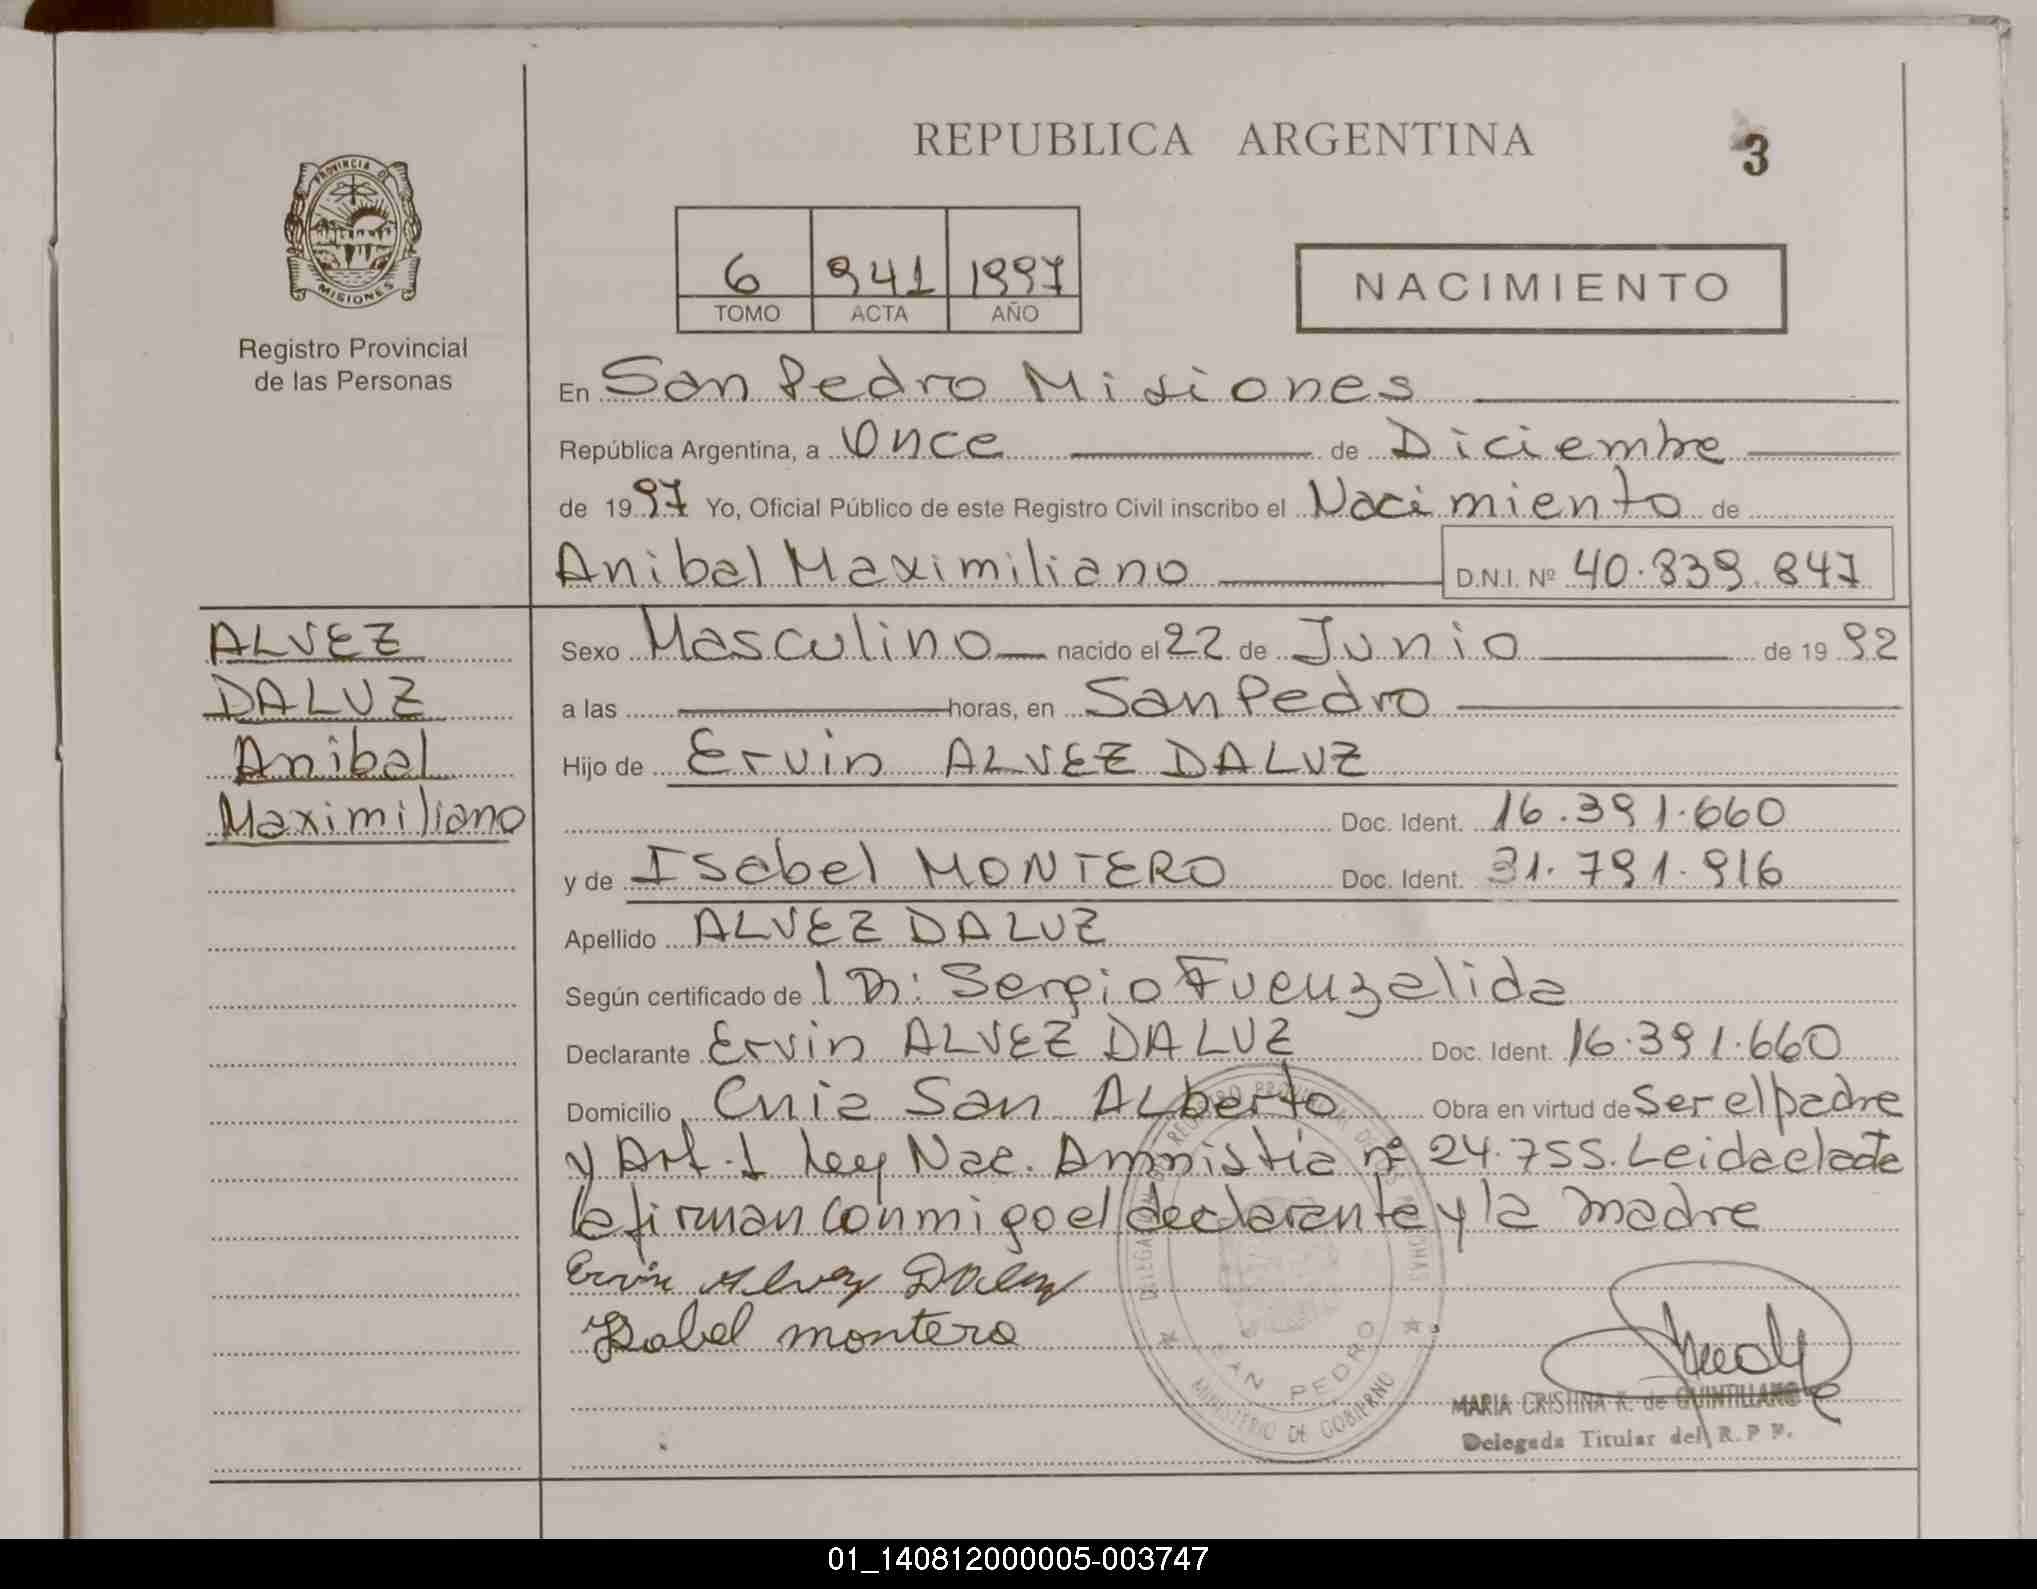 REPUBLICA ARGENTINA
3
PROVINCIA DE
MISIONES
Registro Provincial
de las Personas
6 941 1997
TOMO ACTA AÑO
NACIMIENTO
En San Pedro Misiones
República Argentina, a Once de Diciembre
de 1997 Yo, Oficial Público de este Registro Civil inscribo el Nacimiento de
Anibal Maximiliano D.N.I. Nº 40.839.847
ALVEZ
DALUZ
Anibal
Maximiliano
Sexo Masculino nacido el 22 de Junio de 1992
a las horas, en San Pedro
Hijo de Ervin ALVEZ DALUZ
Doc. Ident. 16.391.660
y de Isabel MONTERO Doc. Ident. 31.791.916
Apellido ALVEZ DALUZ
Según certificado de Dr: Sergio Fuenzalida
Declarante Ervin ALVEZ DALUZ Doc. Ident. 16.391.660
Domicilio Cnia San ALberto Obra en virtud de Ser el padre
y Art. 1 Ley Nac. Amnistia nº 24.755. Leida el acta
la firman conmigo el declarante y la madre
Ervin Alvez Daluz
Isabel montero
REGISTRO PROVINCIAL DE LAS PERSONAS
SAN PEDRO
MINISTERIO DE GOBIERNO
MARIA CRISTINA K. de QUINTILLANO
Delegada Titular del R. P. P.
01_140812000005-003747